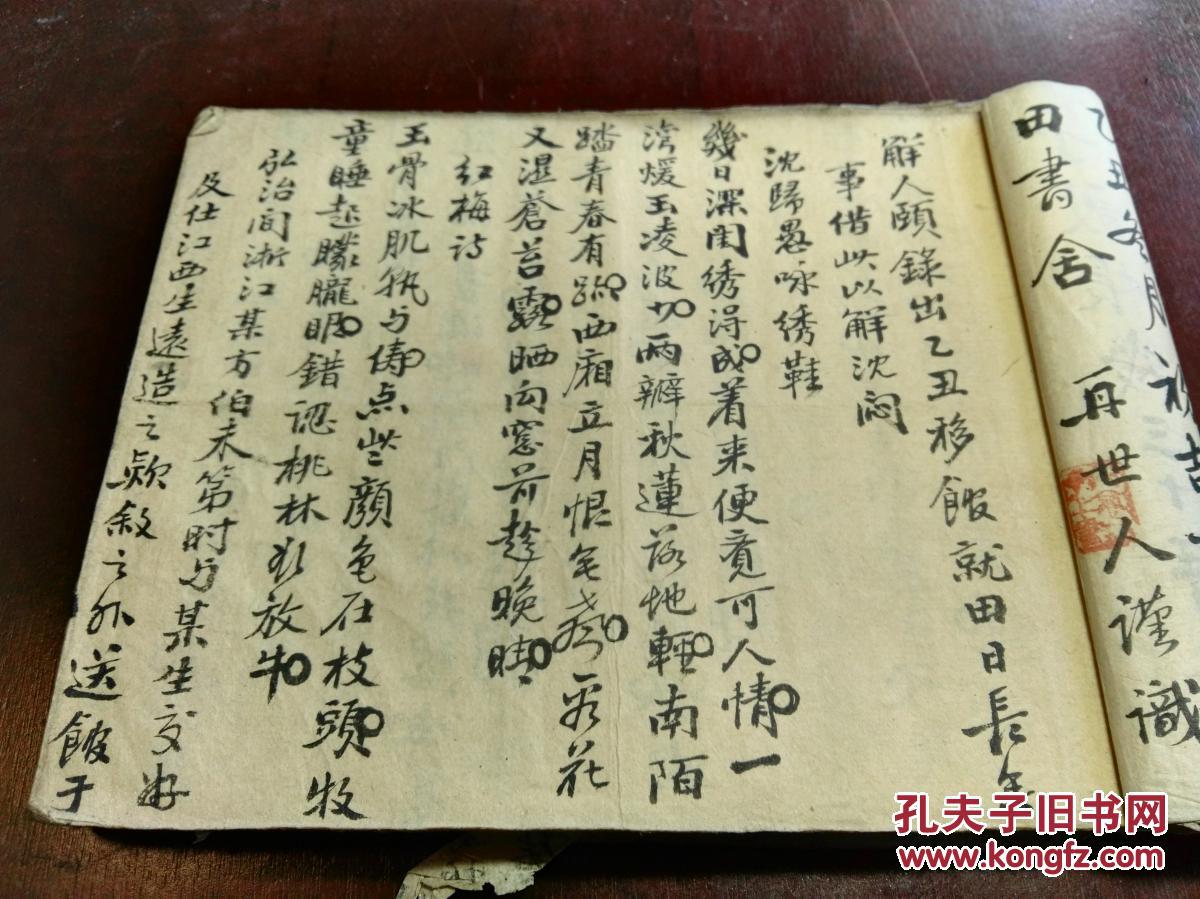 乙丑冬月
田書舍 再世人謹識
解人頤錄出乙丑移館就田日長無
事借此以解沈悶
沈歸愚咏绣鞋
幾日深闺绣得成着来便覺可人情一
湾煖玉凌波切两瓣秋蓮落地輕南陌
踏青春有跡西廂立月恨無聲看花
又湿蒼苔露晒向窓前趁晚晴
红梅诗
玉骨冰肌孰与俦点些颜色在枝頭牧
童睡起朦朧眼错認桃林欲放牛
弘治间浙江某方伯未第时与某生交好
及仕江西生遠造之款叙之外送館于
孔夫子旧书网
www.kongfz.com